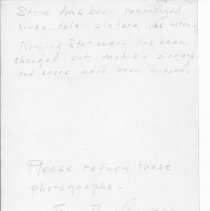 Store has been rearranged
since this picture was taken.
Nothing Stationary has been
changed but movable displays
and bases have been moved.
Please return these
photographs.
To